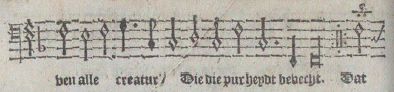 ven alle creatur / Die die purheydt bevecht. Dat